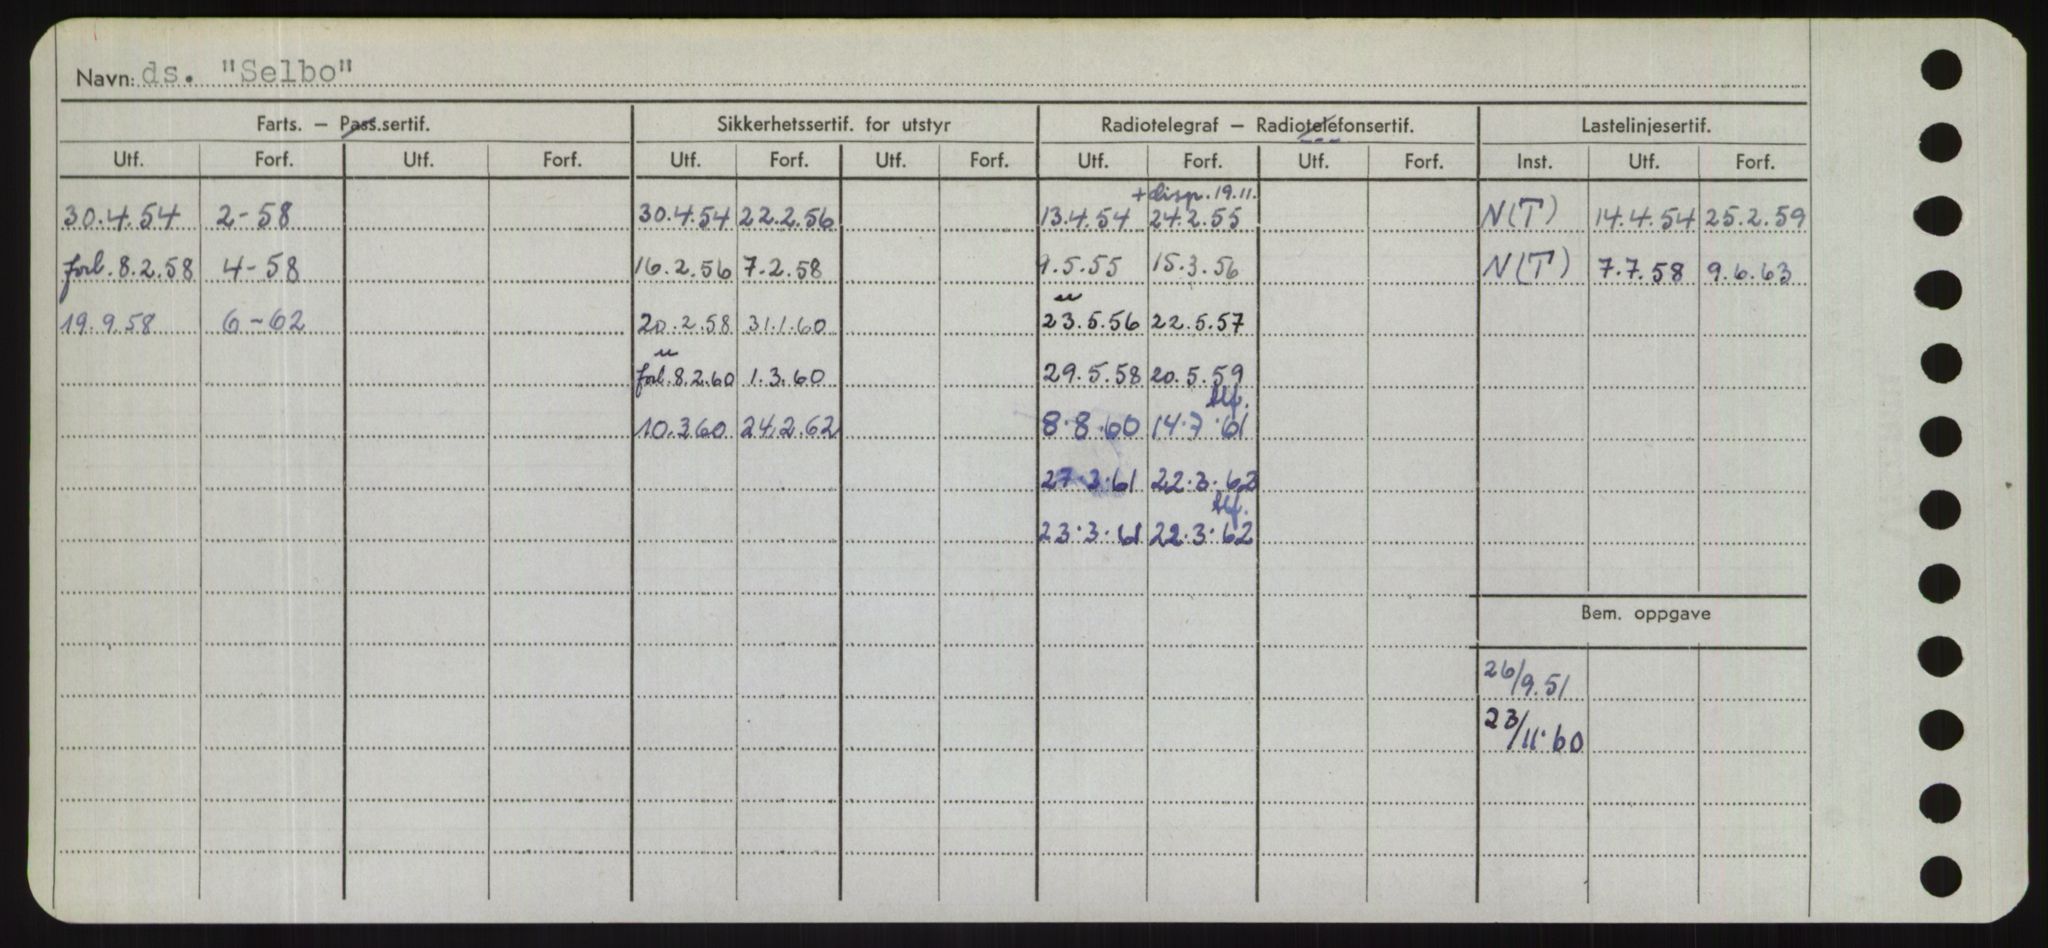 Navn: ds. "Selbo"
Farts. — Pass.sertif. Sikkerhetssertif. for utstyr Radiotelegraf — Radiotelefonsertif. Lastelinjesertif.
Utf. Forf. Utf. Forf. Utf. Forf. Utf. Forf. Utf. Forf. Utf. Forf. Inst. Utf. Forf.
+disp. 19.11.
30.4.54 2-58 30.4.54 22.2.56 13.4.54 24.2.55 N(T) 14.4.54 25.2.59
forl. 8.2.58 4-58 16.2.56 7.2.58 9.5.55 15.3.56 N(T) 7.7.58 9.6.63
19.9.58 6-62 20.2.58 31.1.60 23.5.56 22.5.57
forl. 8.2.60 1.3.60 29.5.58 20.5.59
tlf.
10.3.60 24.2.62 8.8.60 14.7.61
27.3.61 22.3.62
tlf.
23.3.61 22.3.62
Bem. oppgave
26/9.51
23/11.60